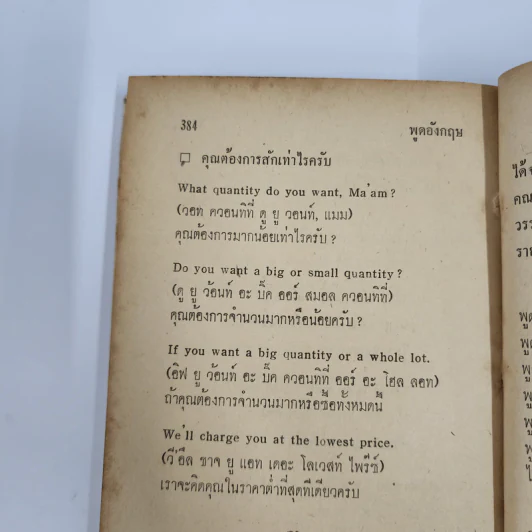 384 พูดอังกฤษ
คุณต้องการสักเท่าไรครับ
What quantity do you want, Ma'am?
(วอท ควอนทิที่ ดู ยู วอนท์, แมม)
คุณต้องการมากน้อยเท่าไรครับ?
Do you want a big or small quantity?
(ดู ยู ว้อนท์ อะ บิ๊ค ออร์ สมอล ควอนทิที่)
คุณต้องการจำนวนมากหรือน้อยครับ?
If you want a big quantity or a whole lot.
(อิฟ ยู ว้อนท์ อะ บิ๊ค ควอนทิที่ ออร์ อะ โฮล ลอท)
ถ้าคุณต้องการจำนวนมากหรือซื้อทั้งหมดนี้
We'll charge you at the lowest price.
(วี'อืล ชาจ ยู แอท เดอะ โลเวสท์ ไพร๊ซ์)
เราจะคิดคุณในราคาต่ำที่สุดทีเดียวครับ